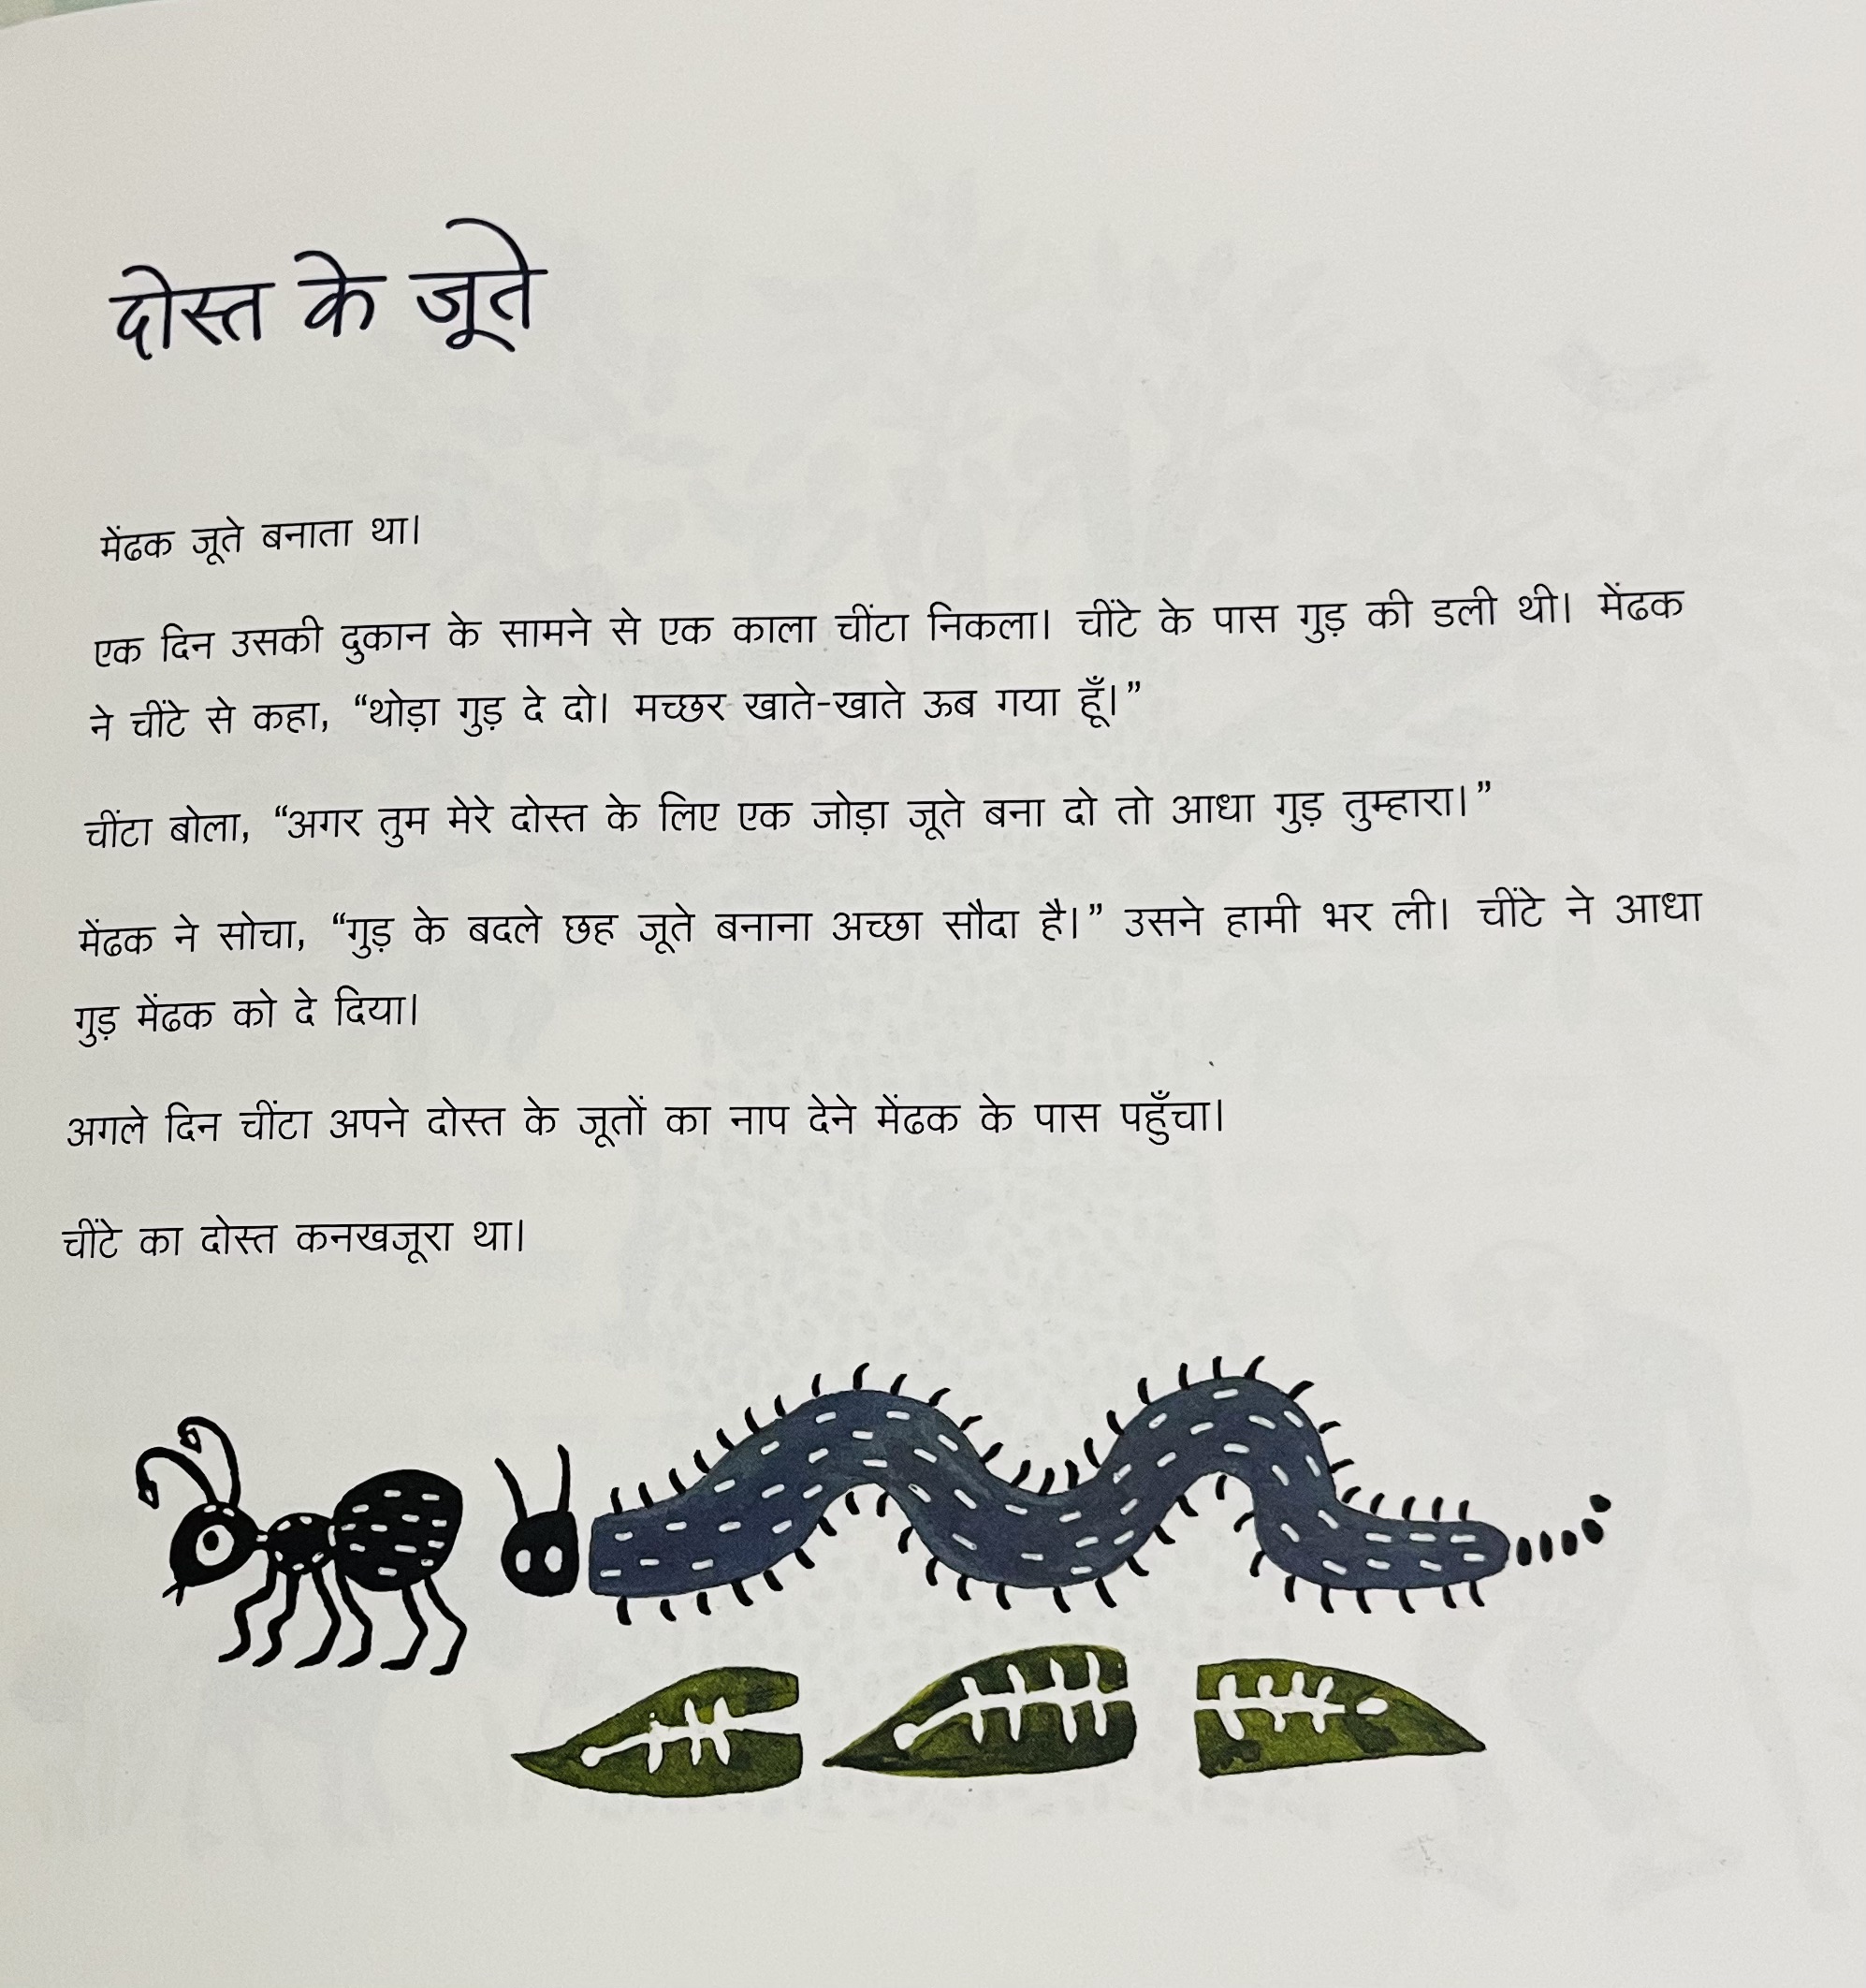 दोस्त के जूते
मेंढक जूते बनाता था।
एक दिन उसकी दुकान के सामने से एक काला चींटा निकला। चींटे के पास गुड़ की डली थी। मेंढक
ने चींटे से कहा, “थोड़ा गुड़ दे दो। मच्छर खाते-खाते ऊब गया हूँ।”
चींटा बोला, “अगर तुम मेरे दोस्त के लिए एक जोड़ा जूते बना दो तो आधा गुड़ तुम्हारा।”
मेंढक ने सोचा, “गुड़ के बदले छह जूते बनाना अच्छा सौदा है।” उसने हामी भर ली। चींटे ने आधा
गुड़ मेंढक को दे दिया।
अगले दिन चींटा अपने दोस्त के जूतों का नाप देने मेंढक के पास पहुँचा।
चींटे का दोस्त कनखजूरा था।